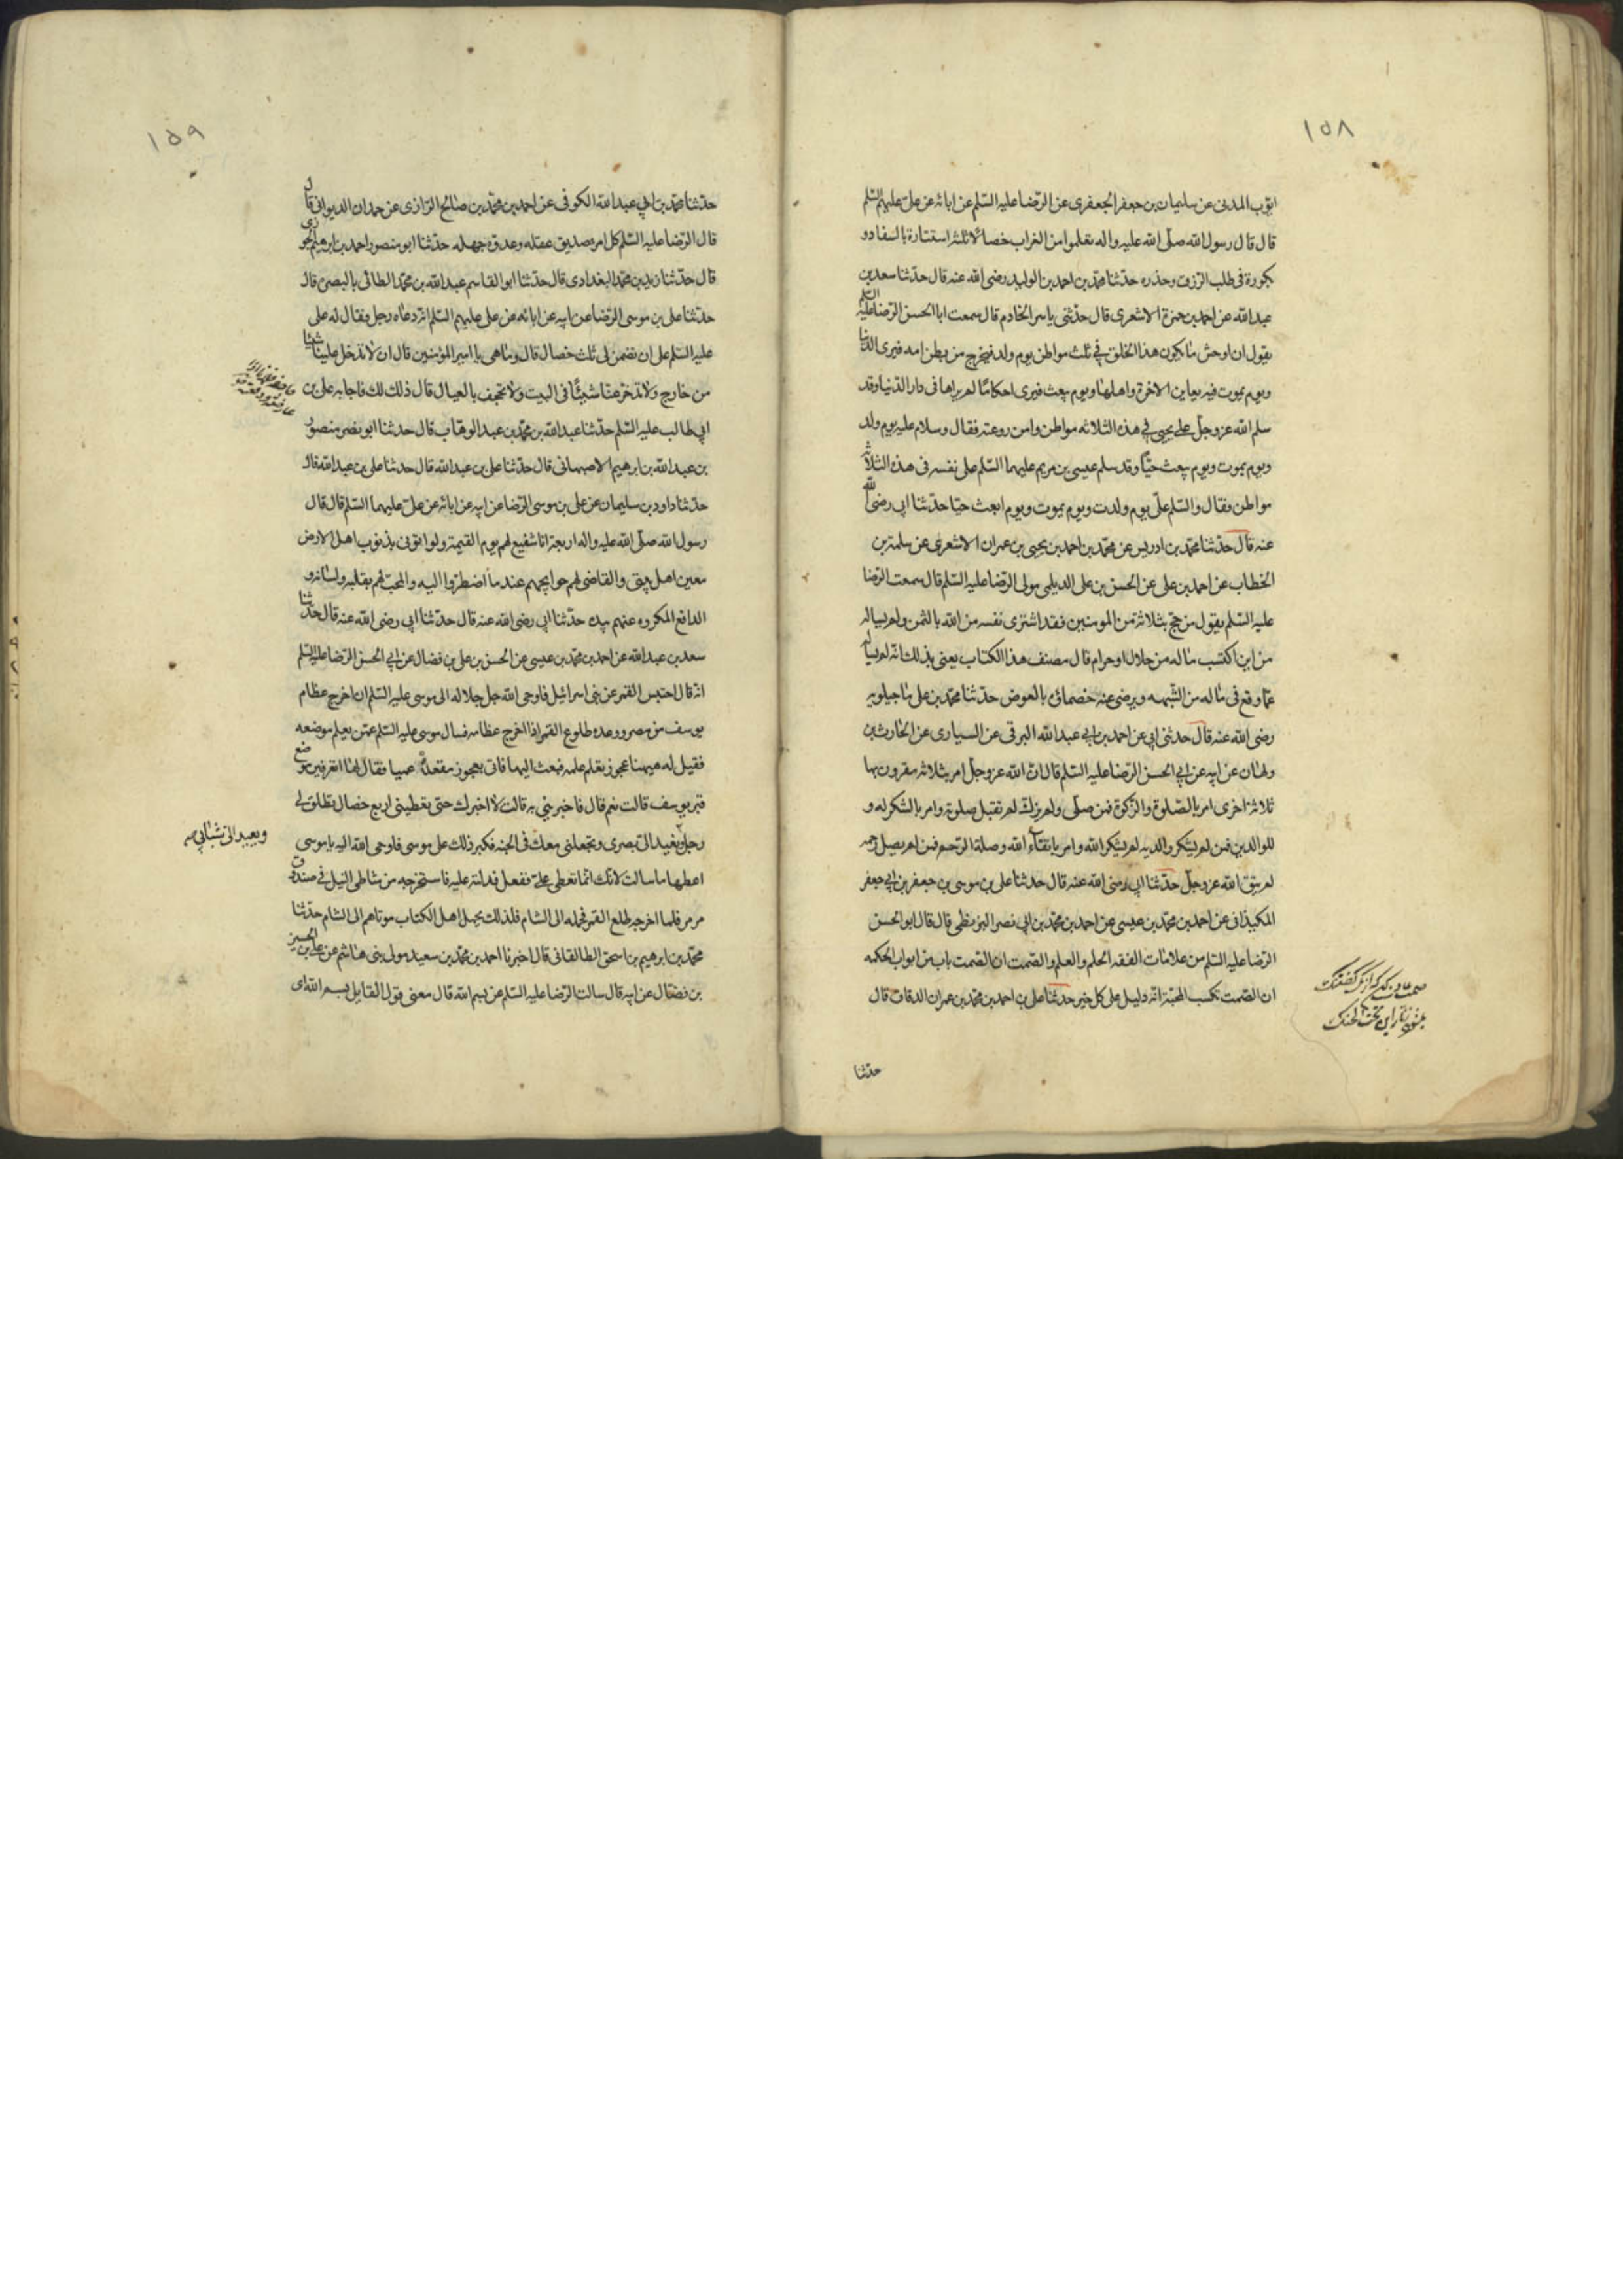 ١٥٨
ايوب المدنى عن سليمان بن جعفر الجعفرى عن الرضا عليه السلم عن ابائه عن على عليهم السلم
قال قال رسول الله صلى الله عليه واله تعلموا من الغراب خصالا ثلثا استتارة بالسفاد و
بكورة فى طلب الرزق وحذره حدثنا محمد بن احمد بن الوليد رضى الله عنه قال حدثنا سعد بن
عبد الله عن احمد بن حمزة الاشعرى قال حدثنى ياسر الخادم قال سمعت ابا الحسن الرضا عليه السلم
يقول ان اوحش ما يكون هذا الخلق فى ثلث مواطن يوم ولد فيخرج من بطن امه فيرى الدنيا
ويوم يموت فيه يعاين الاخرة واهلها ويوم يبعث فيرى احكاما لم يراها فى دار الدنيا وقد
سلم الله عز وجل على يحيى فى هذه الثلاثه مواطن وامن روعته فقال وسلام عليه يوم ولد
ويوم يموت ويوم يبعث حيا وقد سلم عيسى بن مريم عليهما السلم على نفسه فى هذه الثلاثه
مواطن فقال والسلم على يوم ولدت ويوم يموت ويوم ابعث حيا حدثنا ابى رضى الله
عنه قال حدثنا محمد بن ادريس عن محمد بن احمد بن يحيى بن عمران الاشعرى عن سلمة بن
الخطاب عن احمد بن على عن الحسن بن على الديلمى مولى الرضا عليه السلم قال سمعت الرضا
عليه السلم يقول من حج بثلاثة من المومنين فقد اشترى نفسه من الله بالثمن ولم يساله
من اين اكتسب ماله من حلال او حرام قال مصنف هذا الكتاب يعنى بذلك انه لم يساله
عما وقع فى ماله من الشبهه ويرضى عنه خصمائه بالعوض حدثنا محمد بن على ماجيلويه
رضى الله عنه قال حدثنى ابى عن احمد بن ابى عبد الله البرقى عن السيارى عن الحارث بن
ولهان عن ابيه عن ابى الحسن الرضا عليه السلم قال ان الله عز وجل امر بثلاثه مقرون بها
ثلاثة اخرى امر بالصلوة والزكوة فمن صلى ولم يزك لم تقبل صلوته وامر بالشكر له و
للوالدين فمن لم يشكر والديه لم يشكر الله وامر باتقاء الله وصلة الرحم فمن لم يصل رحمه
لم يتق الله عز وجل حدثنا ابى رضى الله عنه قال حدثنا على بن موسى بن جعفر بن ابى جعفر
الكميذانى عن احمد بن محمد بن عيسى عن احمد بن محمد بن ابى نصر البزنطى قال قال ابو الحسن
الرضا عليه السلم من علامات الفقه الحلم والعلم والصمت ان الصمت باب من ابواب الحكمه
ان الصمت يكسب المحبة انه دليل على كل خير حدثنا على بن احمد بن محمد بن عمران الدقاق قال
حدثنا
١٥٩
حدثنا محمد بن ابى عبد الله الكوفى عن احمد بن محمد بن صالح الرازى عن حمدان الديوانى قال
قال الرضا عليه السلم كل امرء صديق عقله وعدوه جهله حدثنا ابو منصور احمد بن ابرهيم الخوزى
قال حدثنا زيد بن محمد البغدادى قال حدثنا ابو القاسم عبد الله بن محمد الطائى بالبصرة قال
حدثنا على بن موسى الرضا عن ابيه عن ابائه عن على عليهم السلم انه دعاه رجل فقال له على
عليه السلم على ان تضمن لى ثلث خصال قال وما هى يا امير المؤمنين قال ان لا تدخل علينا شيئا
من خارج ولا تدخر عنا شيئا فى البيت ولا تجحف بالعيال قال ذلك لك فاجابه على بن
ابى طالب عليه السلم حدثنا عبد الله بن محمد بن عبد الوهاب قال حدثنا ابو نصر منصور
بن عبد الله بن ابرهيم الاصبهانى قال حدثنا على بن عبد الله قال حدثنا على بن عبد الله قال
حدثنا داود بن سليمان عن على بن موسى الرضا عن ابيه عن ابائه عن على عليهما السلم قال قال
رسول الله صلى الله عليه واله اربعة انا شفيع لهم يوم القيمة ولو اتونى بذنوب اهل الارض
معين اهل بيتى والقاضى لهم حوايجهم عند ما اضطروا اليه والمحب لهم بقلبه ولسانه و
الدافع المكروه عنهم بيده حدثنا ابى رضى الله عنه قال حدثنا ابى رضى الله عنه قال حدثنا
سعد بن عبد الله عن احمد بن محمد بن عيسى عن الحسن بن على بن فضال عن ابى الحسن الرضا عليه السلم
انه قال احتبس القمر عن بنى اسرائيل فاوحى الله جل جلاله الى موسى عليه السلم ان اخرج عظام
يوسف من مصر ووعده طلوع القمر اذا اخرج عظامه فسال موسى عليه السلم عمن يعلم موضعه
فقيل له هيهنا عجوز تعلم علمه فبعث اليها فاتى بعجوز مقعدة عميا فقال لها اتعرفين موضع
قبر يوسف قالت نعم قال فاخبرينى به قالت لا اخبرك حتى تعطينى اربع خصال تطلق لى
رجلى وتعيد الى بصرى وتجعلنى معك فى الجنه فكبر ذلك على موسى فاوحى الله اليه يا موسى
ويعيد الى شبابى صه
اعطها ما سالت لانك انما تعطى على ففعل فدلته عليه فاستخرجه من شاطى النيل فى صندوق
مرمر فلما اخرجه طلع القمر فحمله الى الشام فلذلك يحمل اهل الكتاب موتاهم الى الشام حدثنا
محمد بن ابرهيم بن اسحق الطالقانى قال اخبرنا احمد بن محمد بن سعيد مولى بنى هاشم عن على بن الحسين
بن فضال عن ابيه قال سالت الرضا عليه السلم عن بسم الله قال معنى قول القايل بسم الله اى